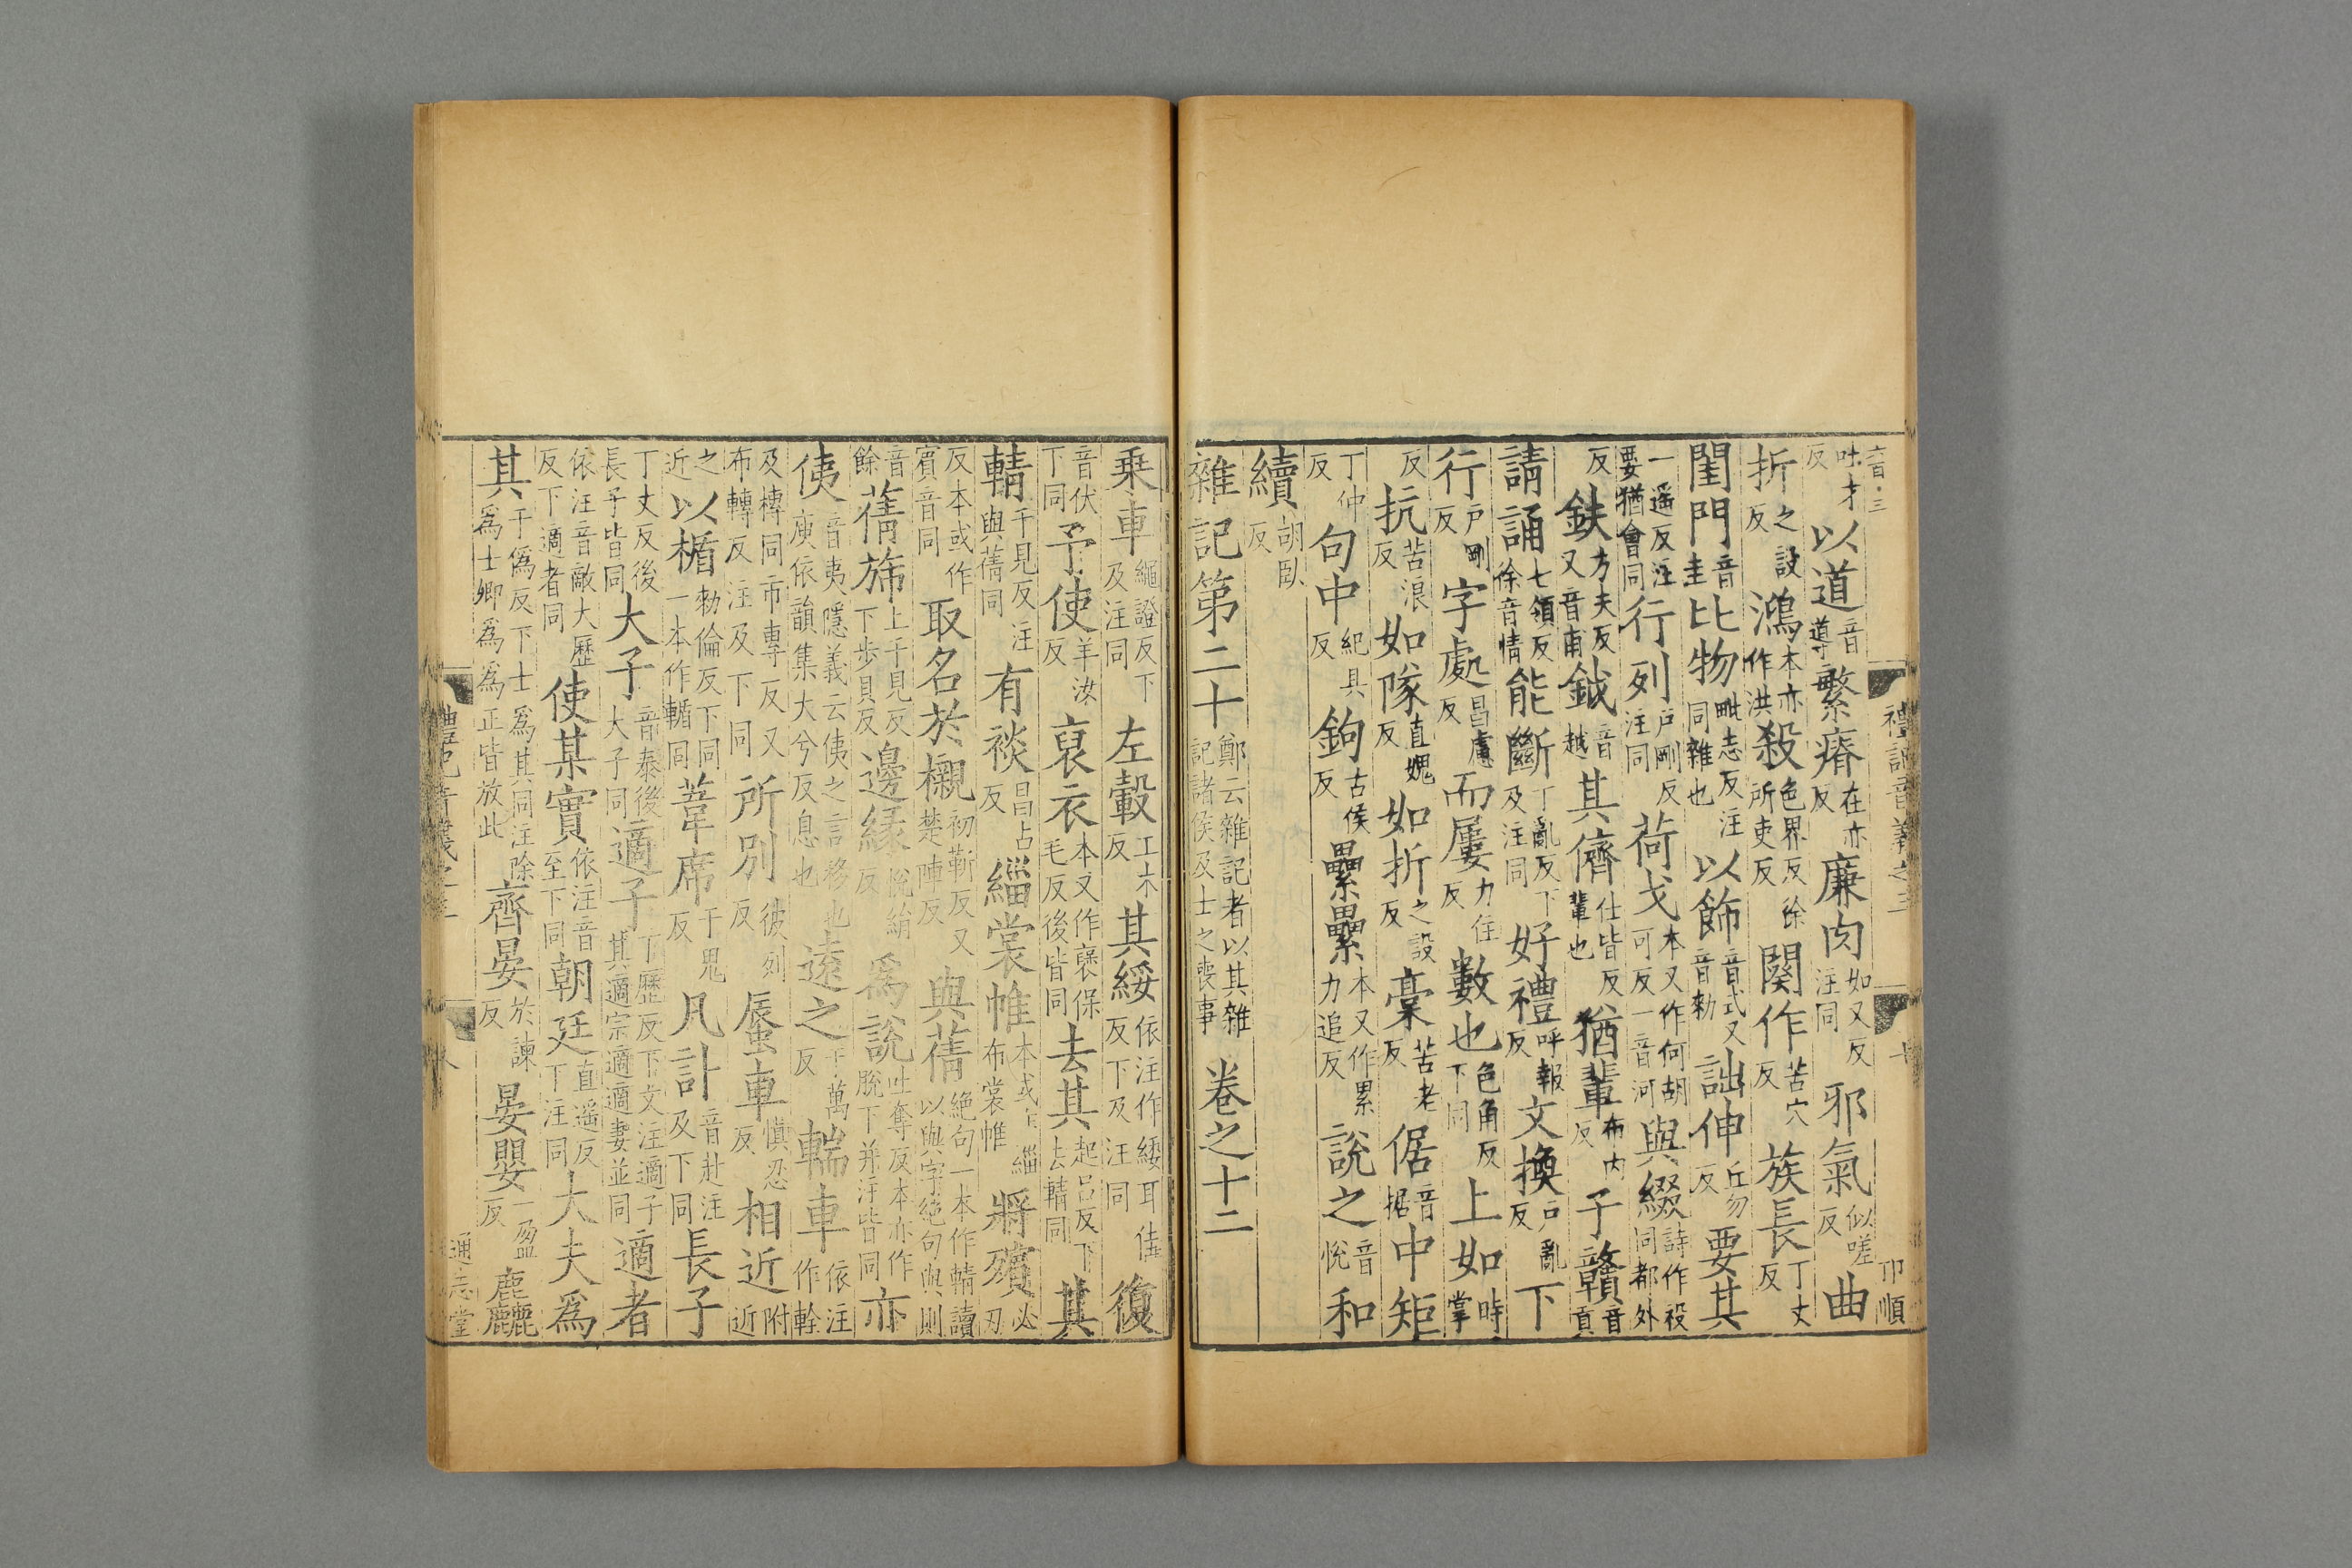 吐才反 以道音導 繁瘠在亦反 廉肉如又反注同 邪氣似嗟反 曲
折之設反 鴻本亦作洪 殺色界反徐所吏反 闋作苦穴反 族長丁丈反
閨門音圭 比物毗志反注同雜也 以飾音式又音勑 詘伸丘勿反 要其
一遥反注要猶會同 行列戶剛反注同 荷戈本又作何胡可反一音河 與綴詩作祋同都外
反 鈇方夫反又音甫 鉞音越 其儕仕皆反輩也 猶輩布内反 子贛音貢
請誦七領反徐音情 能斷丁亂反下及注同 好禮呼報反 文換戶亂反 下
行戶剛反 字處昌慮反 而屢力住反 數也色角反下同 上如時掌
反 抗苦浪反 如隊直媿反 如折之設反 槀苦老反 倨音据 中矩
丁仲反 句中紀具反 鉤古侯反 纍纍本又作累力追反 說之音悅 和
續胡臥反
雜記第二十鄭云雜記者以其雜記諸侯及士之喪事 卷之十二
乗車繩證反下及注同 左轂工木反 其綏依注作緌耳佳反下及注同 復
音伏下同 予使羊汝反 裒衣本又作襃保毛反後皆同 去其起呂反下去輤同 其
輤千見反注與蒨同 有裧昌占反 緇裳帷本或作緇布裳帷 將殯必刃
反本或作賓音同 取名於櫬初靳反又楚陣反 與蒨絶句一本作輤讀以與字絶句與則
音餘 蒨斾上千見反下步貝反 邊緣悅絹反 爲說吐奪反本亦作脫下并注皆同 亦
侇音夷隱義云侇之言移也庾依韻集大兮反息也 遠之于萬反 輲車依注作輇
及槫同市專反又布轉反注及下同 所別彼列反 蜃車愼忍反 相近附近
之近 以楯勑倫反下同一本作輴同 葦席于鬼反 凡訃音赴注及下同 長子
丁丈反後長子皆同 大子音泰後大子同 適子丁歷反下文注適子其適宗適適妻並同 適者
依注音敵大歷反下適者同 使某實依注音至下同 朝廷直遥反下注同 大夫爲
其于僞反下士爲其同注除爲士卿爲爲正皆放此 齊晏於諫反 晏嬰一盈反 麤
禮記音義之三 印順
通志堂